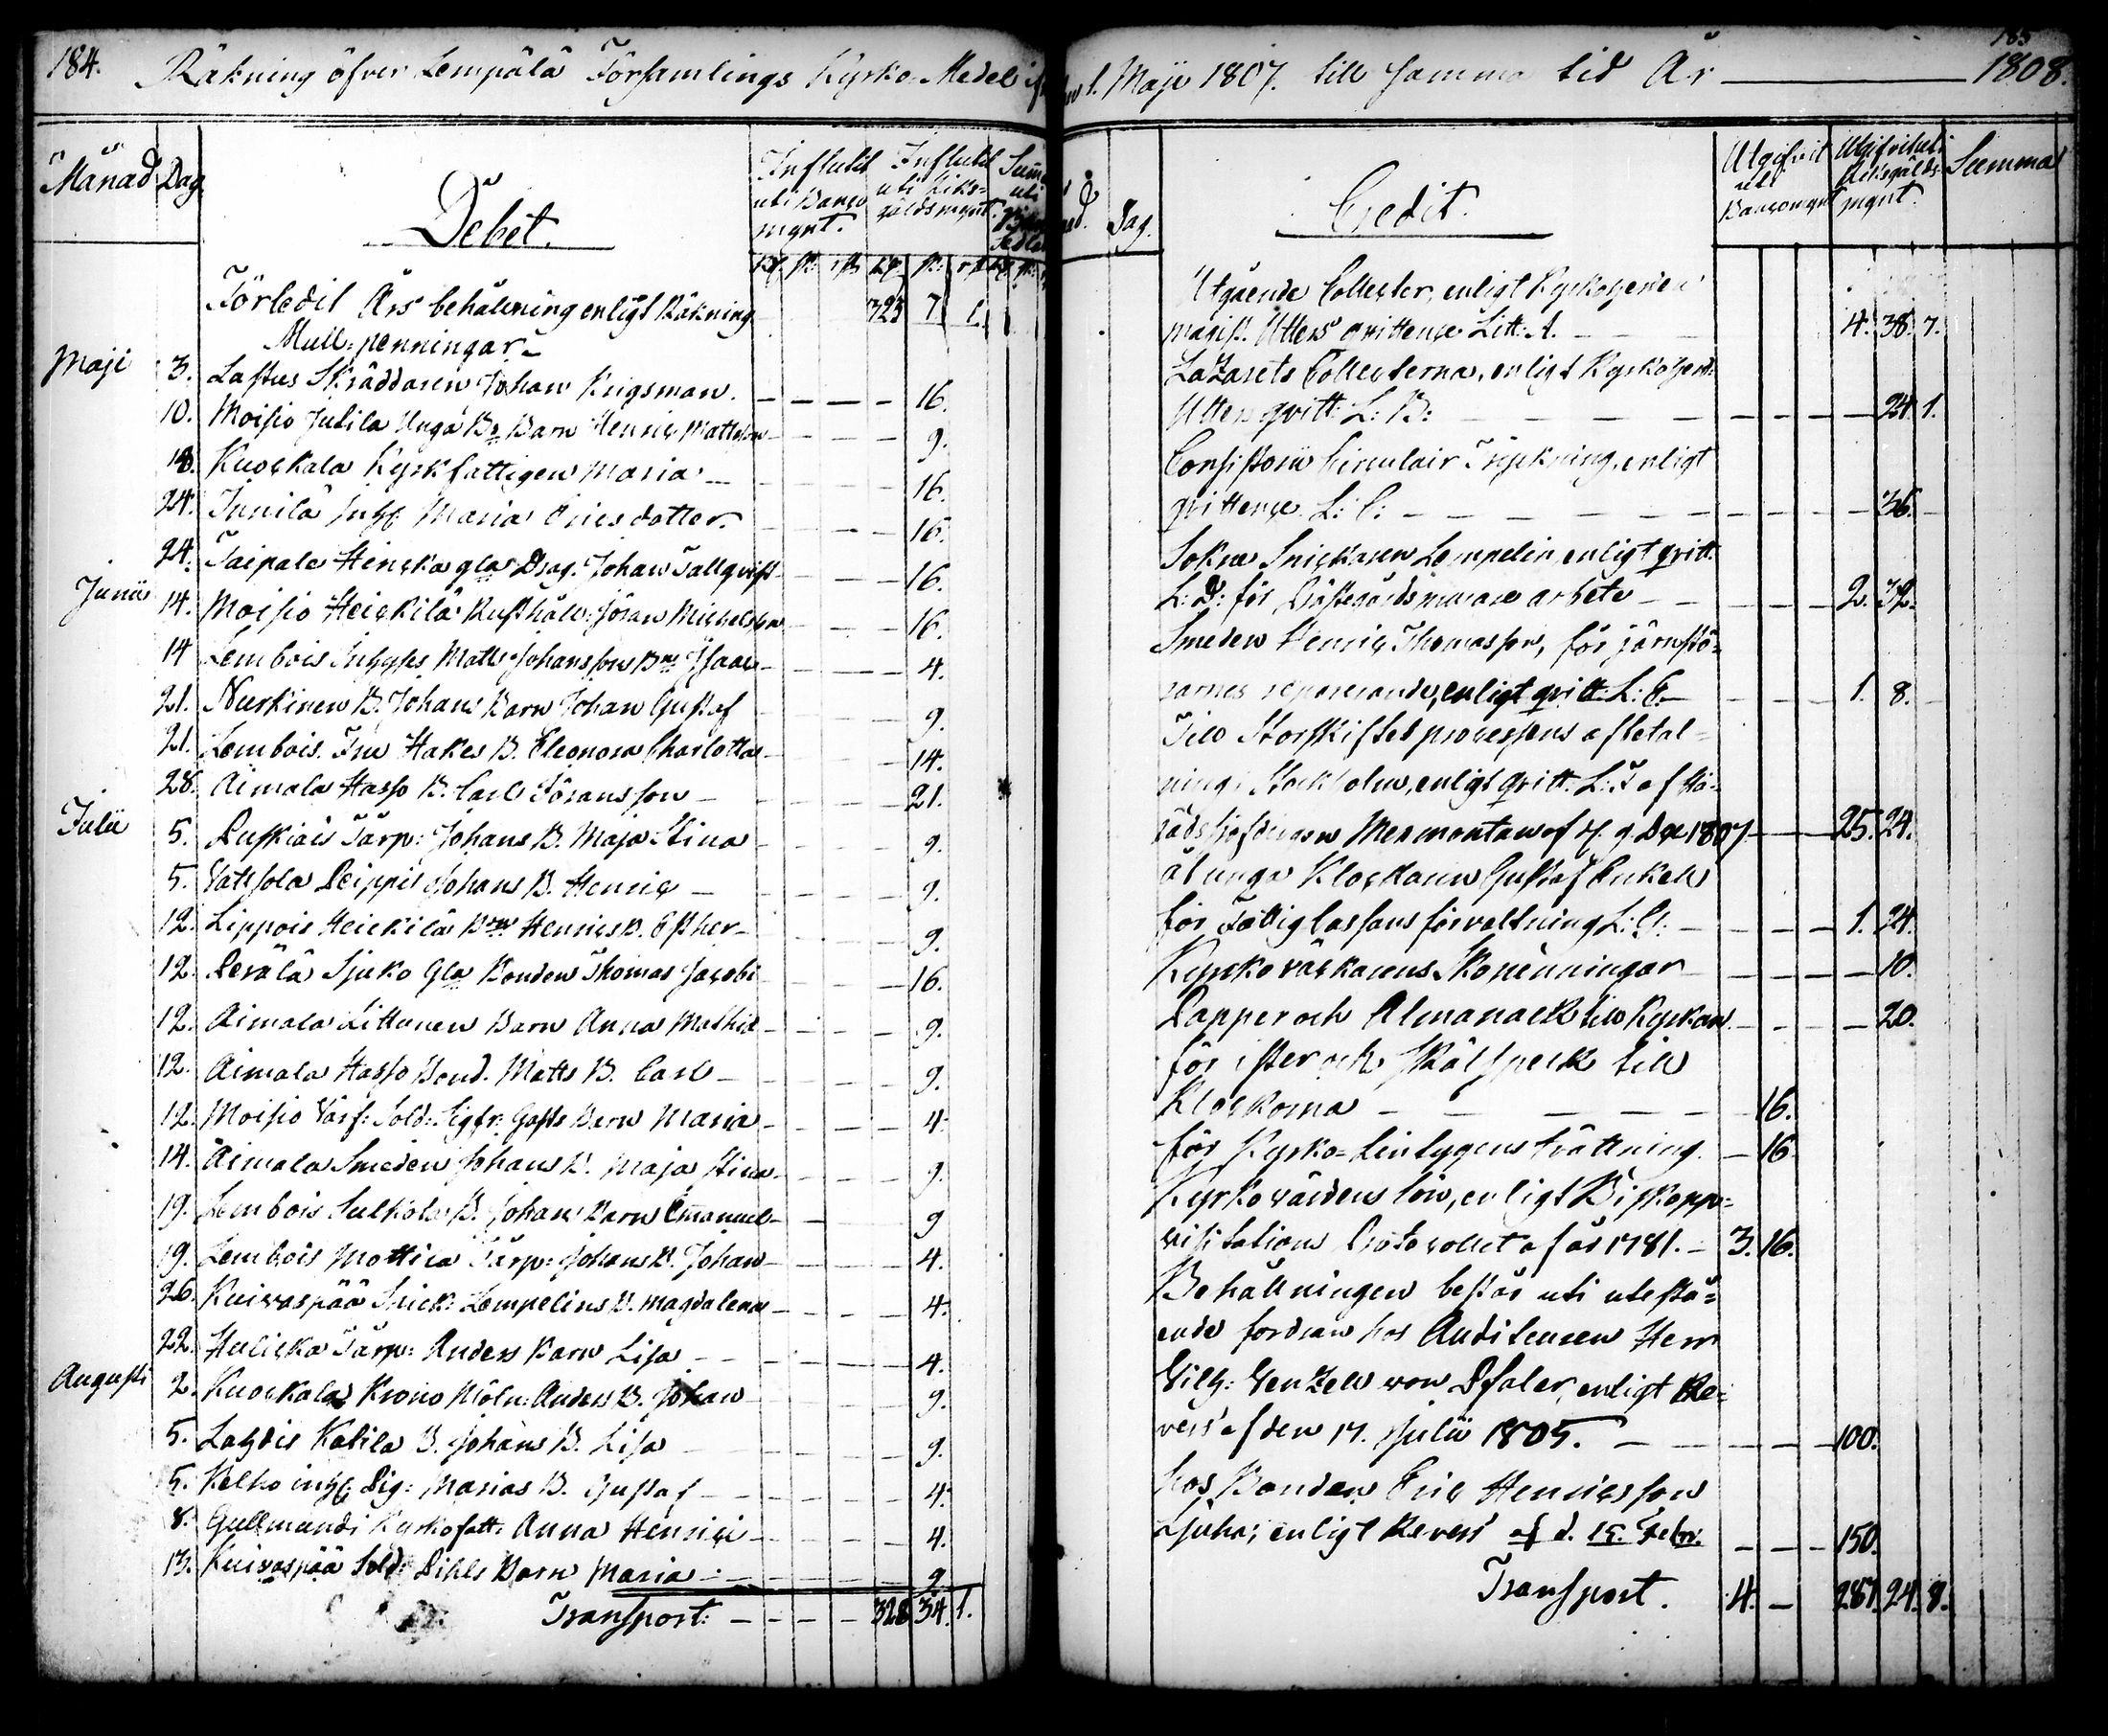 184.
Räkning öfver Lempälä Församlings Kyrko-Medel
Månad Dag
Debet.
Influtit uti Banco mynt.
Influtit uti Riksgäldsmynt.
Förledit Års behållning enligt Räkning 323 7 1.
Mull-penningar
Maji 3. Lastus Skräddaren Johan Krigsman. 16.
10. Moisio Jutila Unga Bs Barn Henric Mattsson 9.
18. Kuockala Kyrkfattigen Maria 16.
24. Innilä Inhs Maria Ericsdotter. 16.
24. Taipale Hincka gla Drag. Johan Tallqvist 16.
Junii 14. Moisio Heickilä Rusthåll: Jöran Michelsson 16.
14 Lembois Inhyses Matts Johanssons Bn Isaac 4.
21. Nurkinen B. Johans Barn Johan Gustaf 9.
21. Lembois. Fru Hakes B. Eleonora Charlotta 14.
28. Aimala Hasso B. Carl Jöransson 21.
Julii 5. Puskiais Tårp: Johans B. Maja Stina 9.
5. Vattsola Peippis Johans B. Henric 9.
12. Lippois Heickilä Henrics B. Esther 9.
12. Perälä Sjuko Gla Bonden Thomas Jacobi 16.
12. Aimala Littonen Barn Anna Mathid 9.
12. Aimala Hasso Bond. Matts B. Carl 9.
12. Moisio Värf: Sold: Sigfr: Gasts Barn Maria 4.
14. Aimala Smeden Johans B. Maja Stina 9.
19. Lembois Sulkola B. Johans Barn Emanuel 9
19. Lembois Mottica Tårp: Johans B. Johan 4.
26. Kuivaspää Snick: Lempelins B. Magdalena 4.
22. Hulicka Tårp: Anders Barn Lisa 4.
Augusti 2. Kuockala Krono Möln: Anders B. Johan 9.
5. Lahdis Katila B. Johans B. Lisa 9.
5. Kelho inhs Pig: Marias B. Gustaf 4.
8. Gullmandi Kyrkofatt: Anna Henrici 4.
13. Kuivaspää Sold: Pihls Barn Maria 9
Transport: 328 34 1.
185
1. Maji 1807. till samma tid År 1808.
Dag.
Credit.
Utgifvit uti Banco mynt
Utgifvit uti Riksgälds mynt.
Summa
Utgående Collecter, enligt Kyrkoherden
magist. Utters qvittence Litt. A. 4. 38. 7.
Lazarets Collecterna, enligt Kyrkoherd:
Utters qvitt: L: B: 24. 1.
Consistorii Circulair Tryckning, enligt
qvittence. L: C: 36.
Sokne Snickaren Lempelin enligt qvitt.
L: D: för arbete 2. 32.
Smeden Henric Thomasson, för järnstö-
rarnes reparerande, enligt qvitt: L: E. 1. 8.
Till Storskiftes processens afbetal-
ning i Stockholm, enligt qvitt: L: F af Hä-
radshöfdingen Mermontan af d. 9 Dec 1807 25. 24.
åt unga Klockaren Gustaf Enkell
för Fattigcassans förvaltning L: G: 1. 24.
Kyrkoväckarens Skopenningar 10.
Papper och Almanack till Kyrkan. 20.
för ister och skålspeck till
Klockorna 16.
för Kyrko-Lintygens tvättning. 16
Kyrkovärdens lön, enligt Biskopps-
visitations Protocollet af år 1781. 3. 16.
Behållningen består uti utestå-
ende fordran hos Auditeuren Herr
Vilh: Venzell von Pfaler, enligt Re-
vers af den 17. Julii 1805. 100.
hos Bonden Eric Henricsson
Juho; enligt Revers af d. 15. Febr. 150.
Transport. 4. — 287. 24. 8.